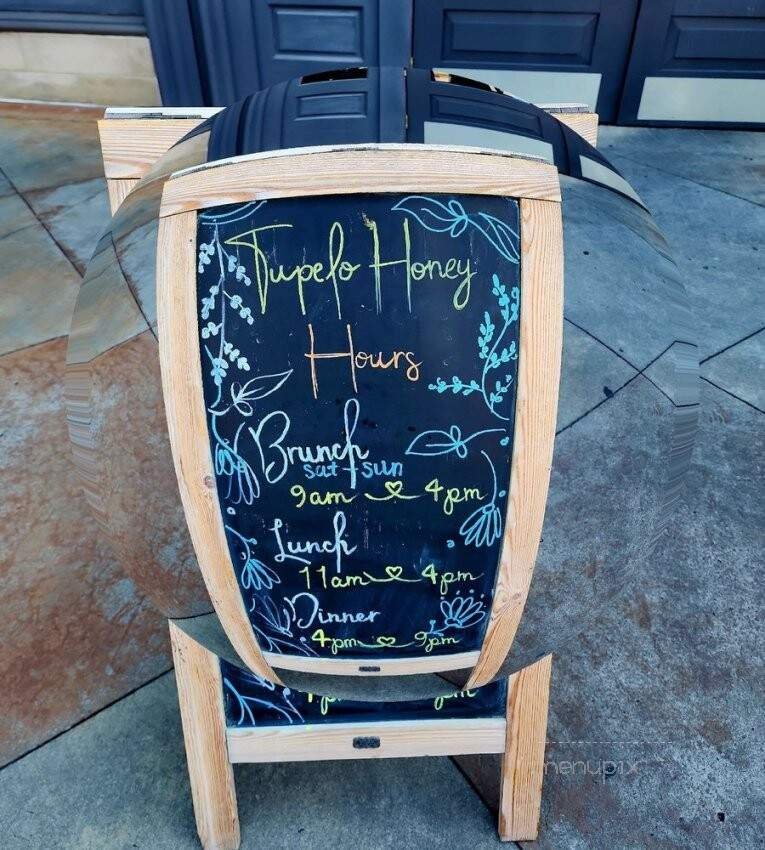 Tupelo Honey
Hours
Brunch
sat - sun
9am 4pm
Lunch
11am 4pm
Dinner
4pm 9pm
4pm 9pm
menupix